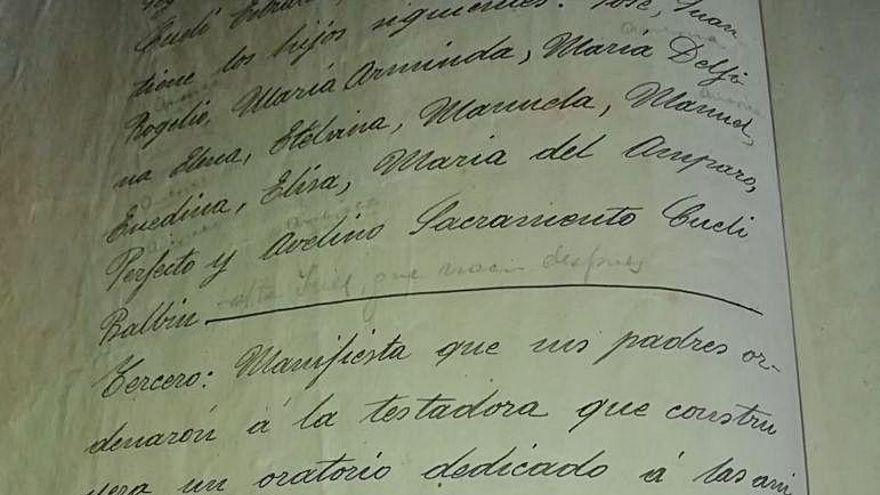 Cueli
tiene los hijos siguientes: José, Juan
Rogelio, María Arminda, María Delfi
na Elena, Etelvina, Manuela, Manuel,
Enedina, Elisa, María del Amparo,
Perfecto y Avelino Sacramento Cueli
Balbin que nacin despues
Tercero: Manifiesta que sus padres or-
denarón á la testadora que constru
yera un oratorio dedicado á las ani